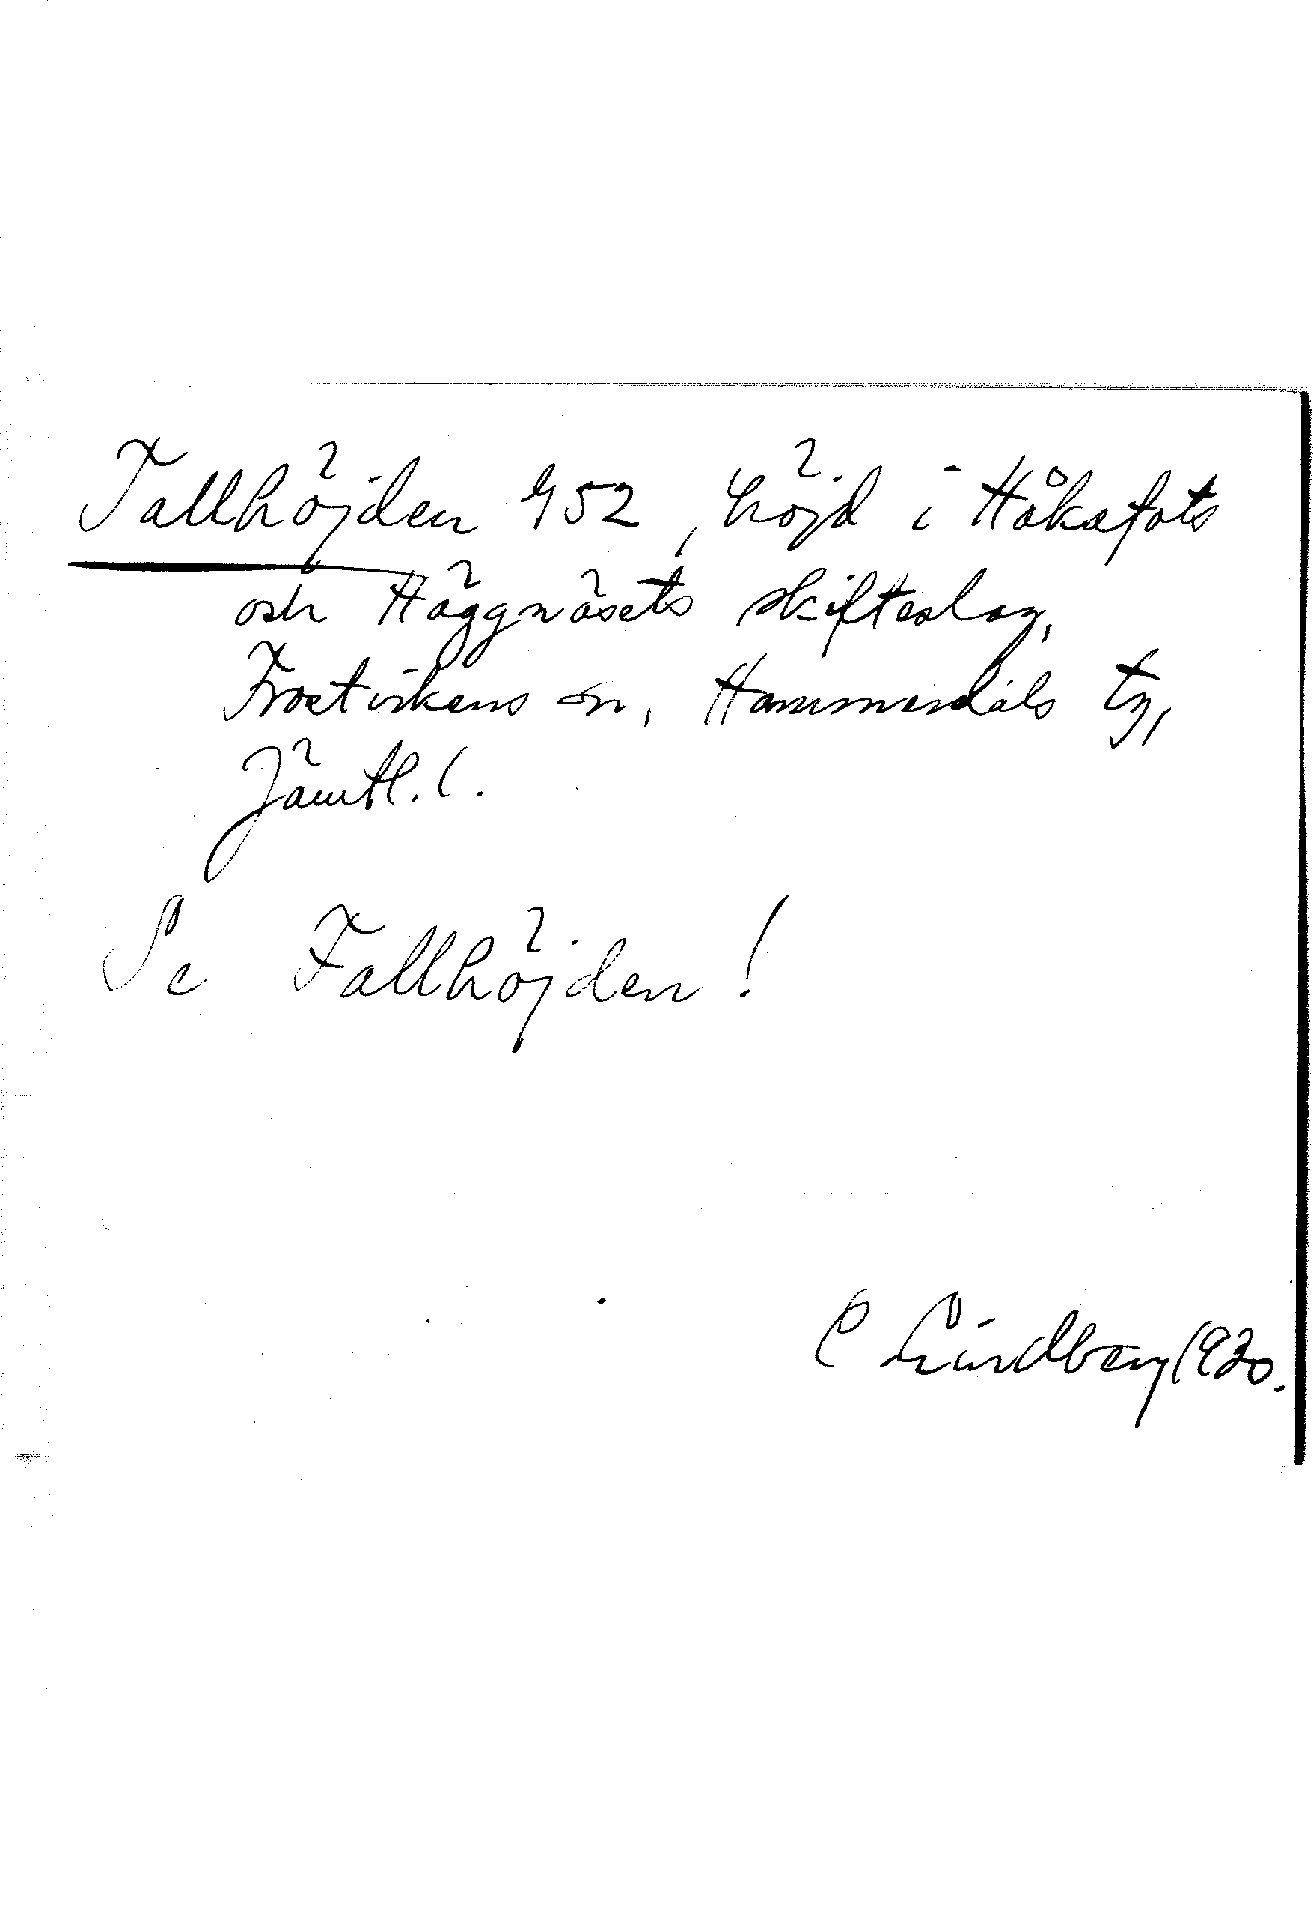 Tallhöjden 452, höjd i Håkafots
och Häggnäsets skifteslag,
Frostvikens sn, Hammerdals tg,
Jämtl. l.
Se Fallhöjden!
C Lindberg 1930.